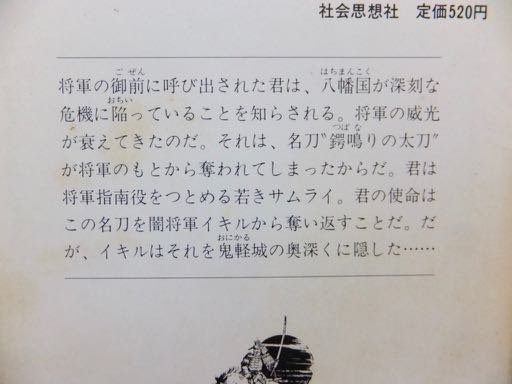 社会思想社　定価520円
ごぜん　はちまんこく
将軍の御前に呼び出された君は、八幡国が深刻な
おちい
危機に陥っていることを知らされる。将軍の威光
つばな
が衰えてきたのだ。それは、名刀〝鍔鳴りの太刀〟
が将軍のもとから奪われてしまったからだ。君は
将軍指南役をつとめる若きサムライ。君の使命は
この名刀を闇将軍イキルから奪い返すことだ。だ
おにかる
が、イキルはそれを鬼軽城の奥深くに隠した……